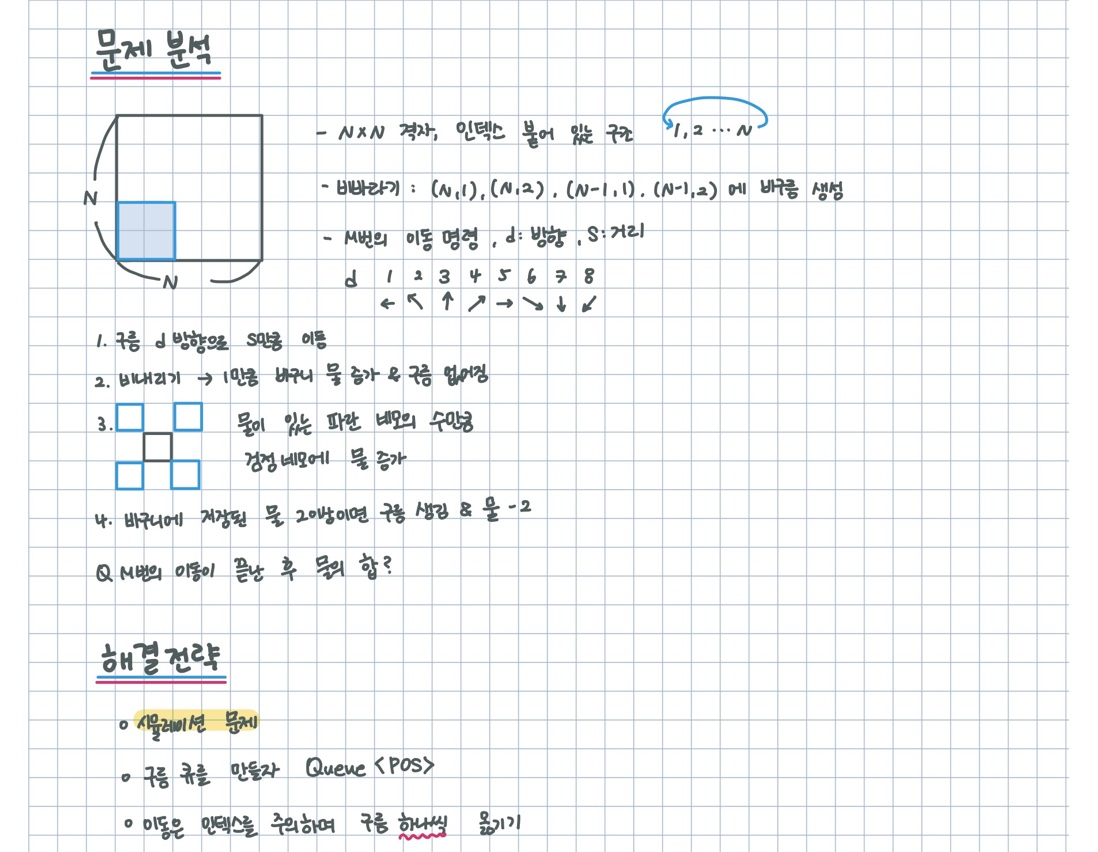 문제 분석
- N×N 격자, 인덱스 붙어 있는 구조 1, 2 ... N
- 비바라기 : (N,1), (N,2), (N-1,1), (N-1,2) 에 비구름 생성
N
- M번의 이동 명령, d: 방향, S: 거리
N
d 1 2 3 4 5 6 7 8
← ↖ ↑ ↗ → ↘ ↓ ↙
1. 구름 d 방향으로 S만큼 이동
2. 비내리기 → 1만큼 바구니 물 증가 & 구름 없어짐
3. 물이 있는 파란 네모의 수만큼
검정 네모에 물 증가
4. 바구니에 저장된 물 2이상이면 구름 생김 & 물 -2
Q M번의 이동이 끝난 후 물의 합?
해결전략
○ 시뮬레이션 문제
○ 구름 큐를 만들자 Queue <POS>
○ 이동은 인덱스를 주의하며 구름 하나씩 옮기기